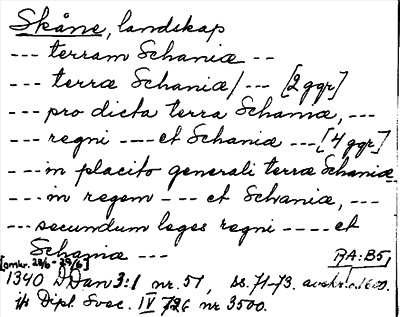 Skåne, landskap
--- terram Schaniæ --
--- terræ Schaniæ/--- [2 ggr]
--- pro dicta terra Schaniæ, ---
--- regni ---- et Schaniæ ---[4 ggr]
--- in placito generali terræ Schaniæ
--- in regem --- et Schaniæ, ---
--- secundum leges regni ---- et
Schaniæ ---
RA:B5,
[omkr. 24/6 - 29/6]
1340 DDan 3:1 nr. 51, ss. 71-73. avskr. c. 1600.
Dipl. Svec. IV 726 nr 3500.